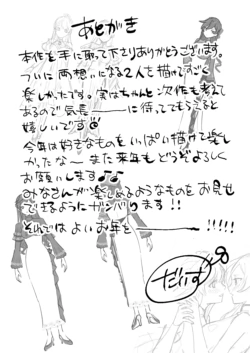 あとがき
本作を手に取って下さりありがとうございます。
ついに両想いになる2人を描けてすごく
楽しかったです。実はちゃんと次作も考えて
あるので気長――――に待ってもらえると
嬉しいです
今年は好きなものをいっぱい描けて楽し
かったな〜 また来年もどうぞよろしく
お願いします♪♪
みなさんが楽しめるようなものをお見せ
できるようにガンバります!!
それでは よいお年を――――!!!!!
だいず